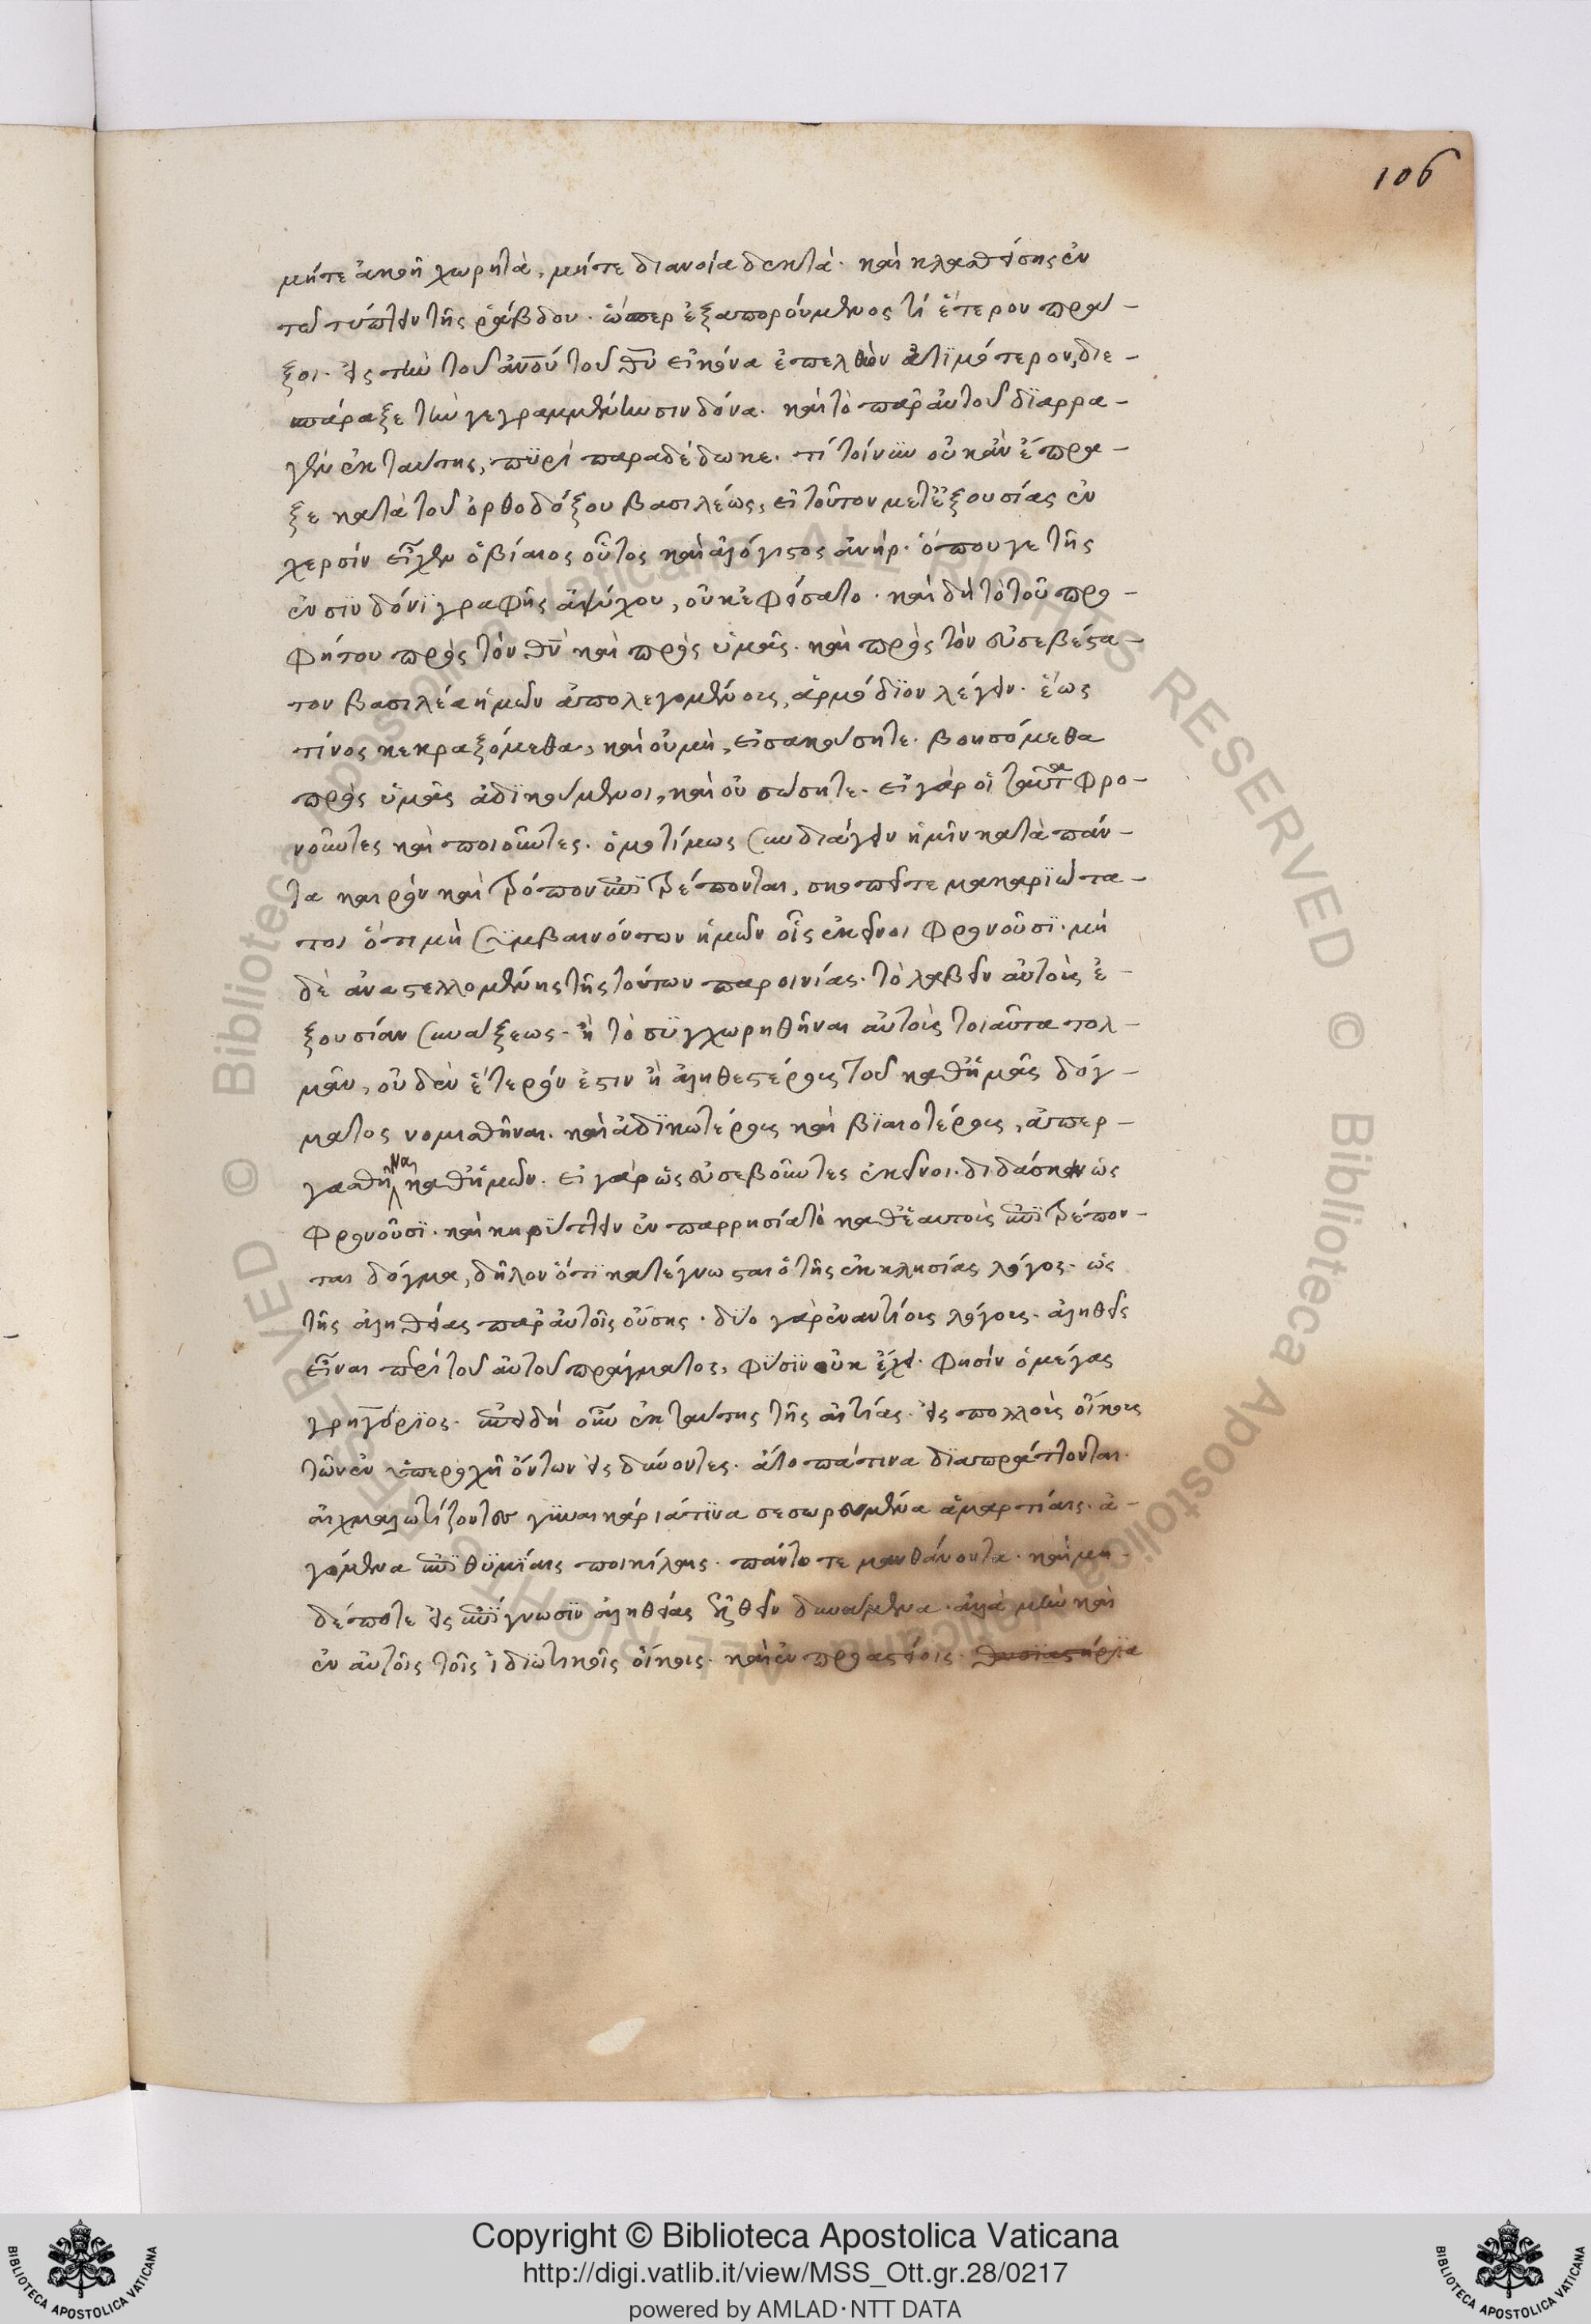 106
μήτε ἀκοῆ χωρητὰ, μήτε διανοία δεκτά. καὶ κλασθείσης ἐν
τῶ τύπτειν τῆς ῥάβδου. ὥσπερ ἐξαπορούμενος τί ἕτερον πρά-
ξοι. εἰς τὴν τοῦ ἀνοῦ τοῦ θῦ εἰκόνα ἐπελθὼν ἀτϊμότερον, διε-
σπάραξε τὴν γεγραμμένην σινδόνα. καὶ τὸ παρ' αὐτοῦ δϊαρρα-
γὲν ἐκ ταύτης, πϋρὶ παραδέδωκε. τί τοίνϋν οὐκ ἂν ἔπρα-
ξε κατὰ τοῦ ὀρθοδόξου βασιλέως, εἰ τοῦτον μετ' ἐξουσίας ἐν
χερσὶν εἶχεν ὁ βίαιος οὗτος καὶ ἀλόγιστος ἀνήρ. ὅπου γε τῆς
ἐν σϊνδόνϊ γραφῆς ἀψύχου, οὐκ ἐφείσατο. καὶ δὴ τὸ τοῦ προ-
φήτου πρὸς τὸν θν καὶ πρὸς ὑμᾶς. καὶ πρὸς τὸν εὐσεβέστα-
τον βασιλέα ἡμῶν ἀπολεγομένοις, ἁρμόδϊον λέγειν. ἕως
τίνος κεκραξόμεθα, καὶ οὐ μὴ, εἰσακούσητε. βοησόμεθα
πρὸς ὑμᾶς ἀδϊκούμενοι, καὶ οὐ σώσητε. εἰ γὰρ οἱ ταῦτα φρο-
νοῦντες καὶ ποιοῦντες. ὁμοτίμως συνδιάγειν ἡμῖν κατὰ πάν-
τα καιρὸν καὶ τρόπον ἐπϊτρέπονται, σκοπεῖτε μακαρϊώτα-
τοι ὅτι μὴ συμβαινόντων ἡμῶν οἷς ἐκεῖνοι φρονοῦσϊ. μὴ
δὲ ἀναστελλομένης τῆς τούτων παροινίας. τὸ λαβεῖν αὐτοὺς ἐ-
ξουσίαν συνάξεως. ἢ τὸ σϋγχωρηθῆναι αὐτοὺς τοιαῦτα τολ-
μᾶν, οὐδὲν ἕτερόν ἐστιν ἢ ἀληθεστέρους τοῦ καθ' ἡμᾶς δόγ-
ματος νομισθῆναι. καὶ ἀδϊκωτέρους καὶ βϊαιοτέρους, ἀπερ-
γασθῆναι καθ' ἡμῶν. εἰ γὰρ ὡς εὐσεβοῦντες ἐκεῖνοι. διδάσκειν ὡς
φρονοῦσϊ. καὶ κηρύττειν ἐν παρρησία τὸ καθ' ἑαυτοὺς ἐπϊτρέπον-
ται δόγμα, δῆλον ὅτϊ κατέγνωσται ὁ τῆς ἐκκλησίας λόγος. ὡς
τῆς ἀληθείας παρ' αὐτοῖς οὔσης. δύο γὰρ ἐναντίους λόγους. ἀληθεῖς
εἶναι περὶ τοῦ αὐτοῦ πράγματος, φύσϊν οὐκ ἔχει. φησὶν ὁ μέγας
γρηγόρϊος. ἐπειδὴ οὖν ἐκ ταύτης τῆς αἰτίας. εἰς πολλοὺς οἴκους
τῶν ἐν ὑπεροχῆ ὄντων εἰς δύνοντες. ἄτοπά τινα δϊαπράττονται.
αἰχμαλωτίζοντες γϋναικάριά τϊνα σεσωρευμένα ἁμαρτίαις. ἀ-
γόμενα ἐπϊθϋμίαις ποικίλαις. πάντοτε μανθάνοντα. καὶ μη-
δέποτε εἰς ἐπίγνωσϊν ἀληθείας ἐλθεῖν δυνάμενα. ἀλλὰ μὴν καὶ
ἐν αὐτοῖς τοῖς ἰδϊωτικοῖς οἴκοις. καὶ ἐν προαστείοις. θυσϊαστήρϊα
Copyright © Biblioteca Apostolica Vaticana
http://digi.vatlib.it/view/MSS_Ott.gr.28/0217
powered by AMLAD·NTT DATA
BIBLIOTECA APOSTOLICA VATICANA
BIBLIOTECA APOSTOLICA VATICANA
© Biblioteca Apostolica Vaticana ALL RIGHTS RESERVED © Biblioteca Apostolica Vaticana ALL RIGHTS RESERVED